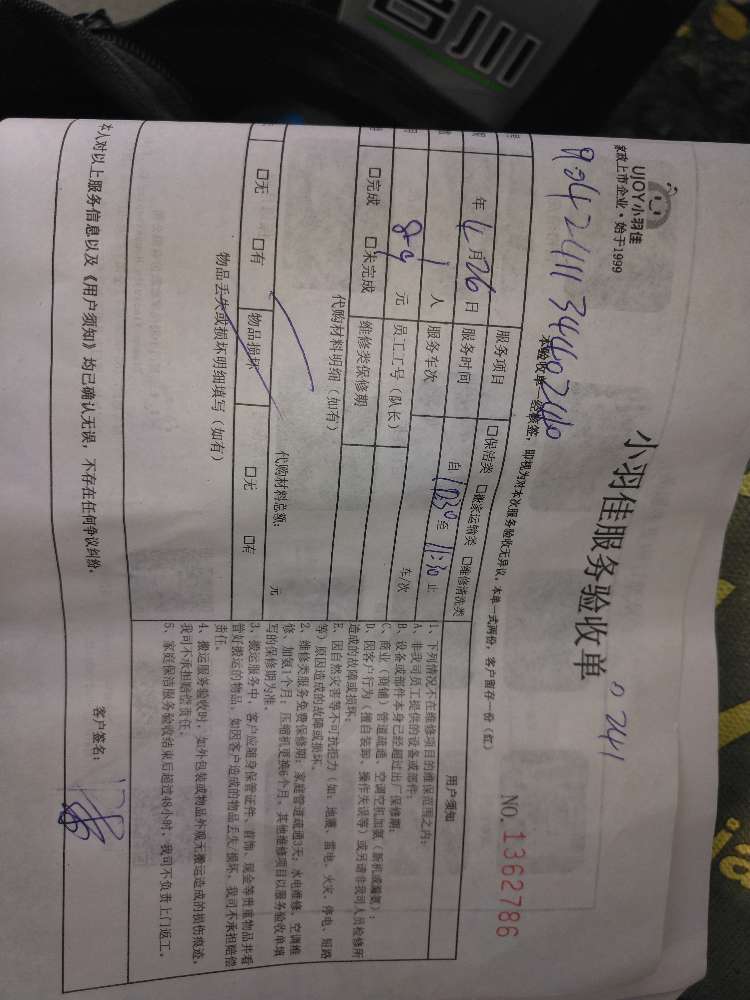 吉川
UJOY小羽佳
家政上市企业·始于1999
小羽佳服务验收单
241
NO.1362786
本验收单一经核签，即视为对本次服务验收无异议，本单一式两份，客户留存一份（红）
服务项目 □保洁类 □搬家运输类 □维修清洗类
年4月26日 服务时间 自 至11:30止
1人 服务车次 车/次
元 员工工号（队长）
□完成 □未完成 维修类保修期
代购材料明细（如有）
代购材料总额： 元
□无 □有 物品损坏 □无 □有
物品丢失或损坏明细填写（如有）
用户须知
1、下列情况不在维修项目的维保范围之内：
A、非我司员工提供的设备或部件；
B、设备或部件本身已经超过出厂保修期；
C、商业（商铺）管道疏通、空调空机加氨（新机或漏氨）；
D、因客户行为（擅自装卸、操作失误等）或另请非我司人员检修所
造成的故障或损坏；
E、因自然灾害等不可抗拒力（如：地震、雷电、火灾、停电、短路
等）原因造成的故障或损坏。
2、维修类服务免费保修期：家庭管道疏通3天；水电维修、空调维
修、加氨1个月；压缩机更换6个月。其他维修项目以服务验收单填
写的保修期为准。
3、搬运服务中，客户应随身保管证件、首饰、现金等贵重物品并看
管好搬运的物品，如因客户造成的物品丢失/损坏，我司不承担赔偿
责任。
4、搬运服务验收时，如外包装或物品外观无搬运造成的损伤痕迹，
我司不承担赔偿责任。
5、家庭保洁服务验收结束后超过48小时，我司不负责上门返工。
本人对以上服务信息以及《用户须知》均已确认无误，不存在任何争议纠纷。
客户签名：